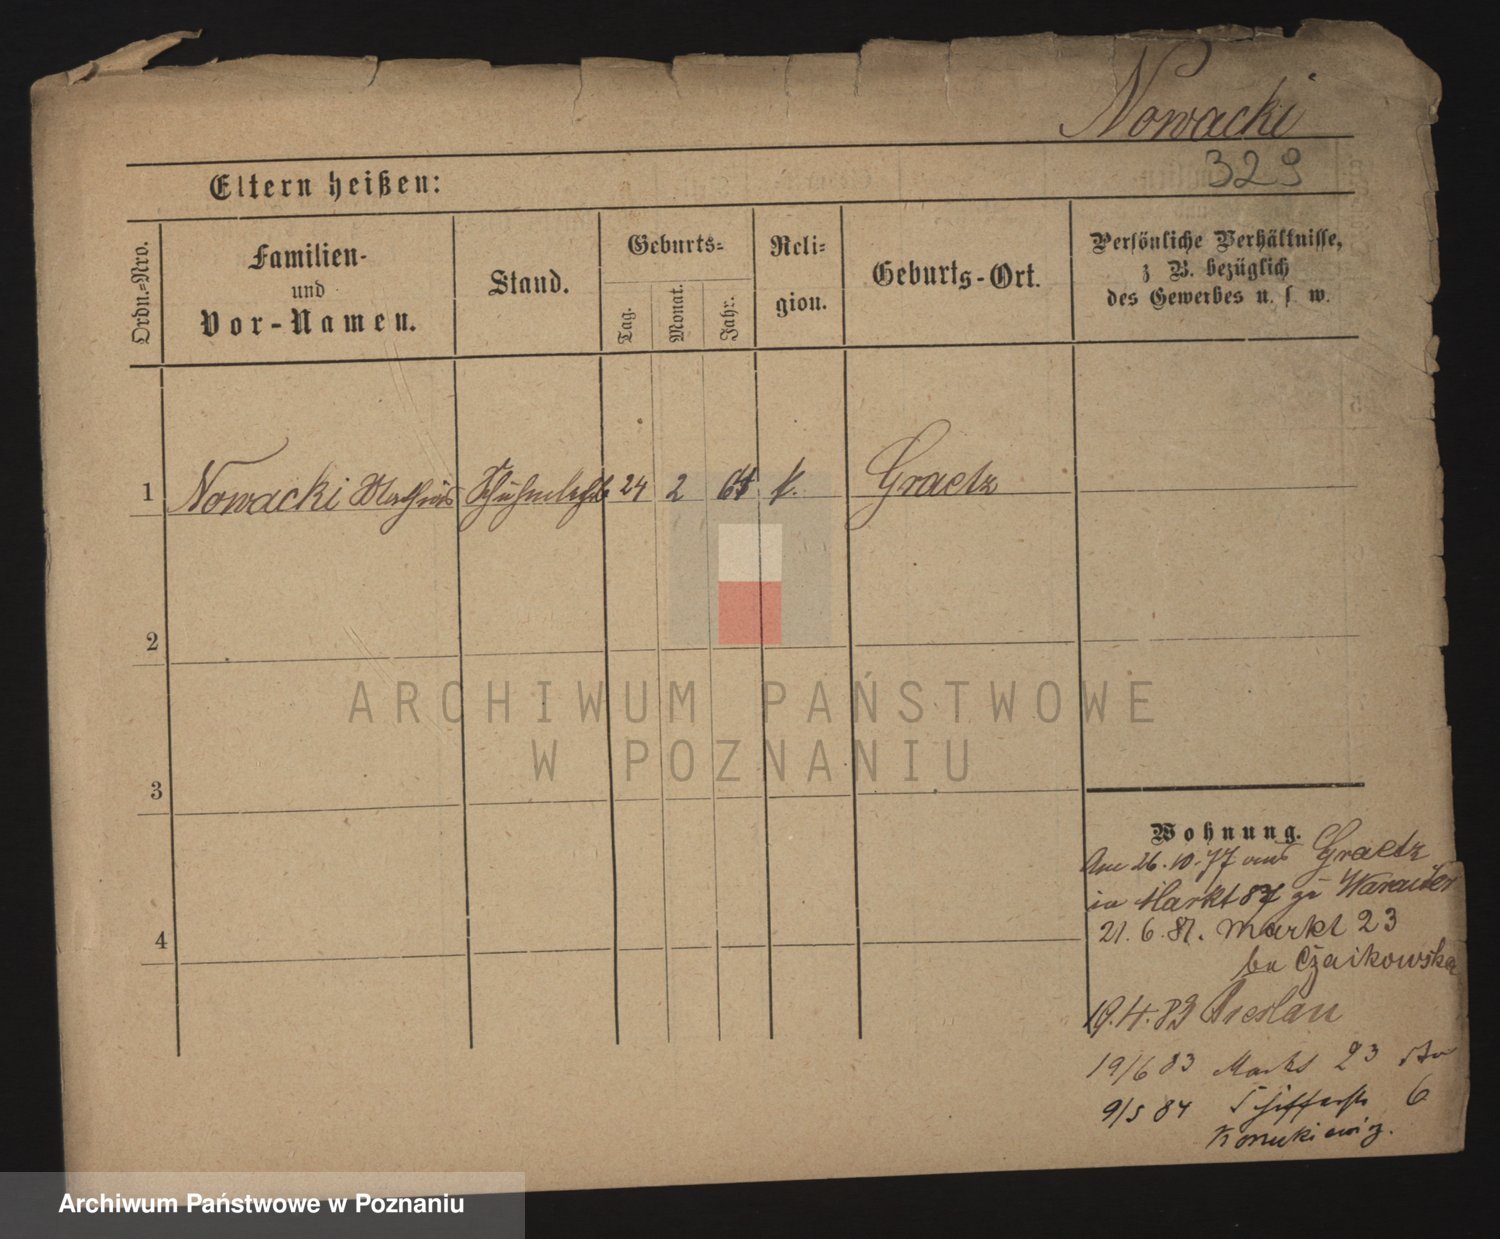 Nowacki
329
Eltern heißen:
Ordn.-Nro.
Familien-
und
Vor-Namen.
Stand.
Geburts-
Tag.
Monat.
Jahr.
Reli-
gion.
Geburts-Ort.
Persönliche Verhältnisse,
z B. bezüglich
des Gewerbes u. s w.
1 Nowacki 24 2 k. Graetz
2
3
4
Wohnung.
Am 26.10.77 aus Graetz
in Markt 87 zu
21.6.81. Markt 23
Czaikowska
19.4.83 Breslau
19/6 83 Markt 23
9/5 84 6
ARCHIWUM PAŃSTWOWE
W POZNANIU
Archiwum Państwowe w Poznaniu